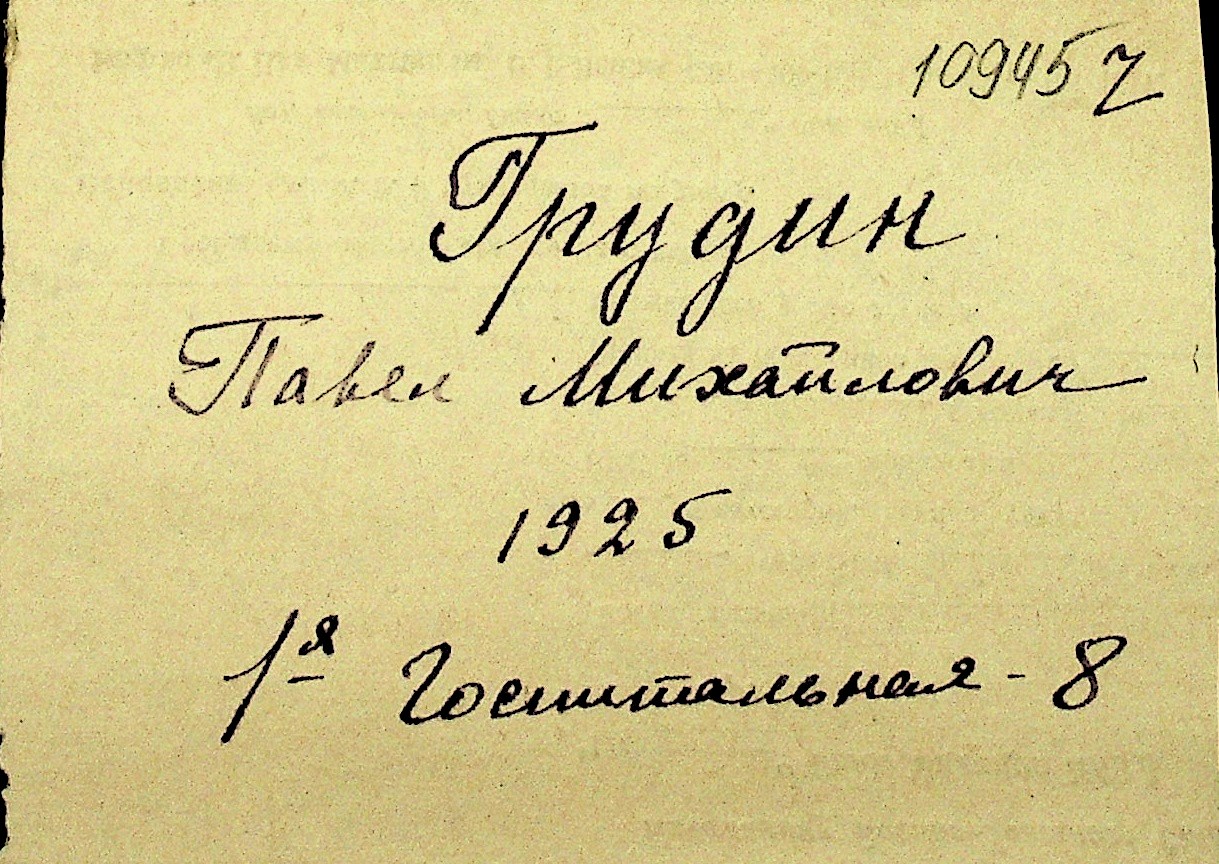 109457
Грудин
Павел Михайлович
1925
1я Госпитальная - 8